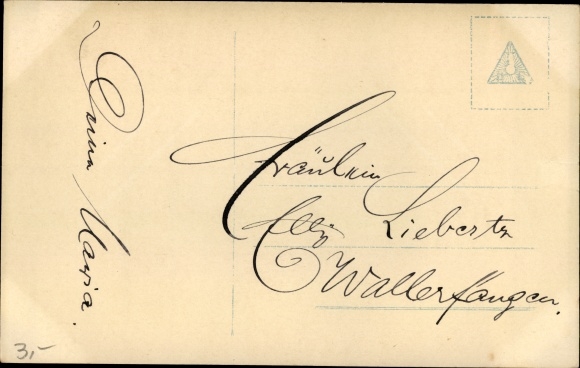 Deine Maria.
Fräulein
Elly Liebertz
Wallerfangen.
3,-